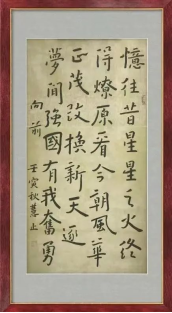 憶往昔星星之火終
得燎原看今朝風華
正茂改換新天逐
夢間強國有我奮勇
向前
壬寅秋慧正